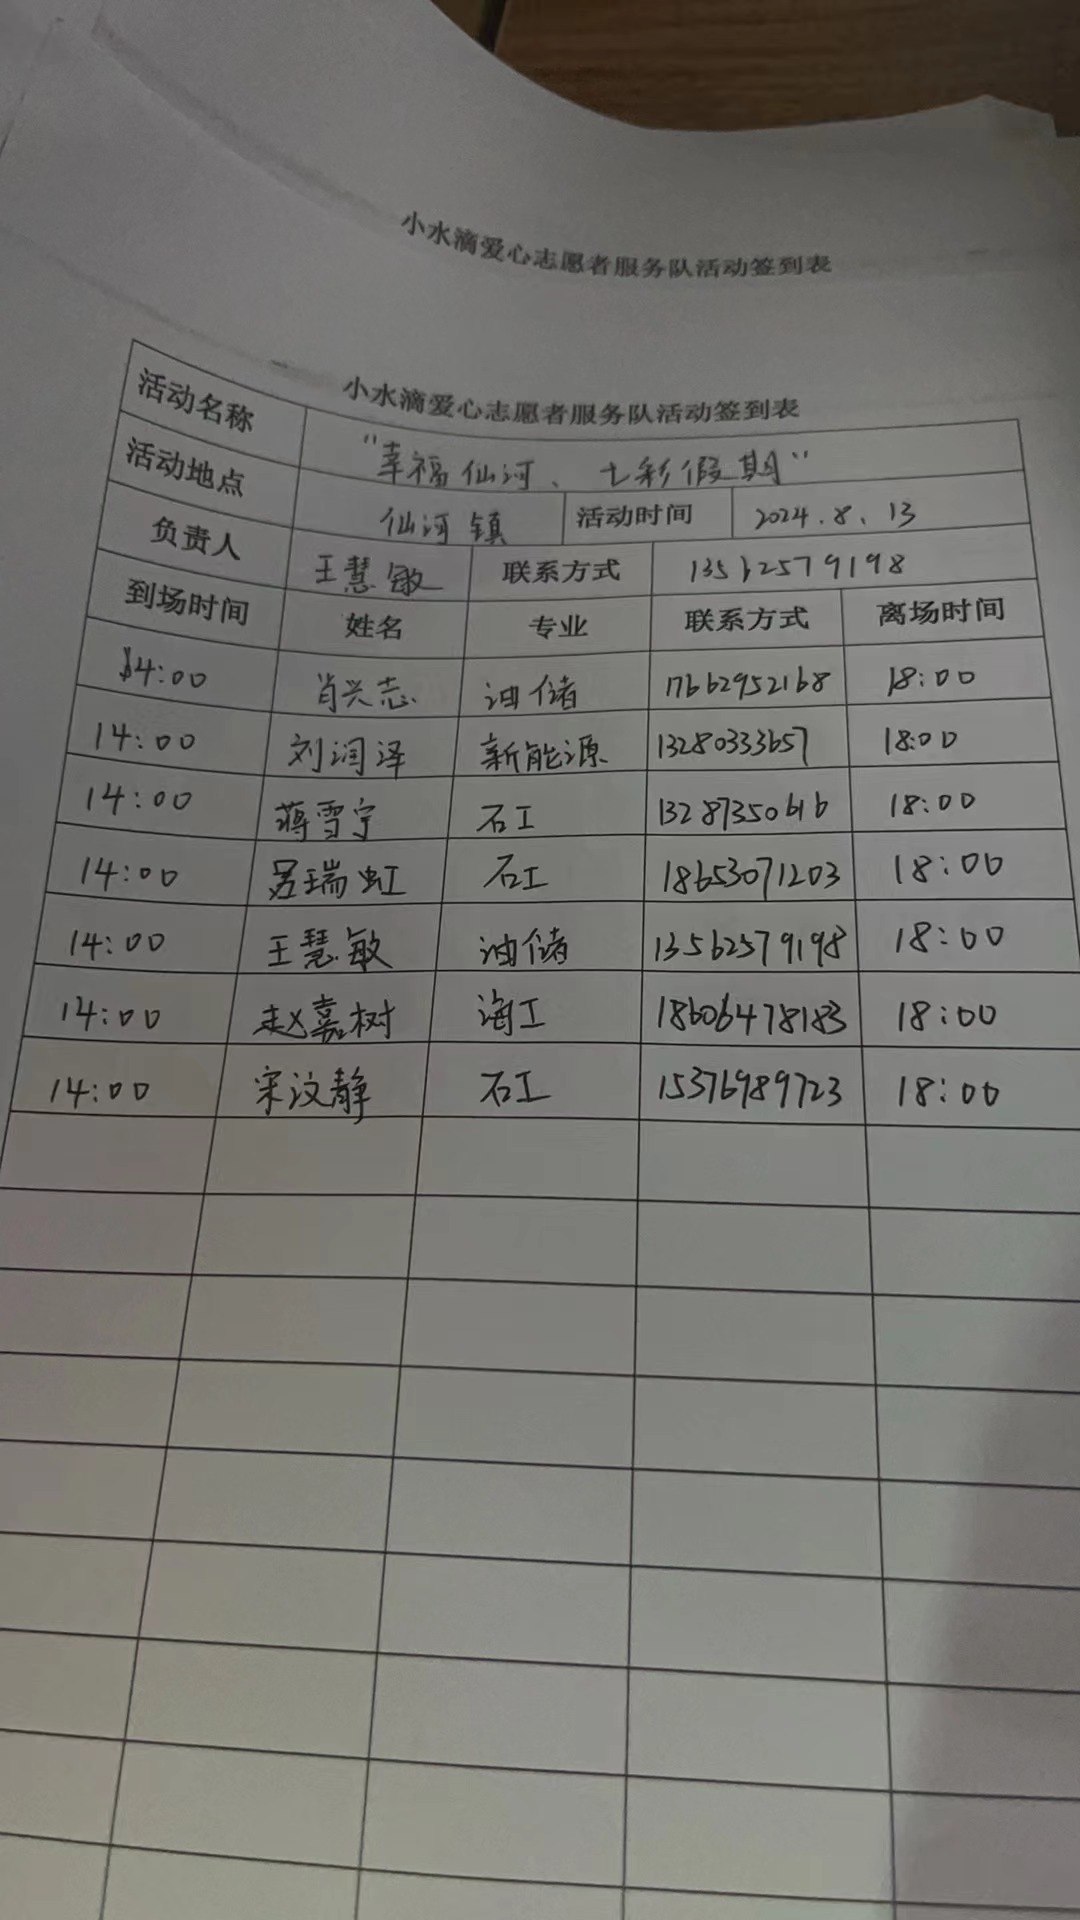 小水滴爱心志愿者服务队活动签到表
小水滴爱心志愿者服务队活动签到表
活动名称 "幸福仙河、七彩假期"
活动地点 仙河镇 活动时间 2024.8.13
负责人 王慧敏 联系方式 13562579198
到场时间 姓名 专业 联系方式 离场时间
14:00 肖兴志 油储 17662952168 18:00
14:00 刘润泽 新能源 13280333657 18:00
14:00 蒋雪宁 石工 13287350616 18:00
14:00 吕瑞虹 石工 18653071203 18:00
14:00 王慧敏 油储 13562579198 18:00
14:00 赵嘉树 海工 18606478183 18:00
14:00 宋汶静 石工 15376989723 18:00